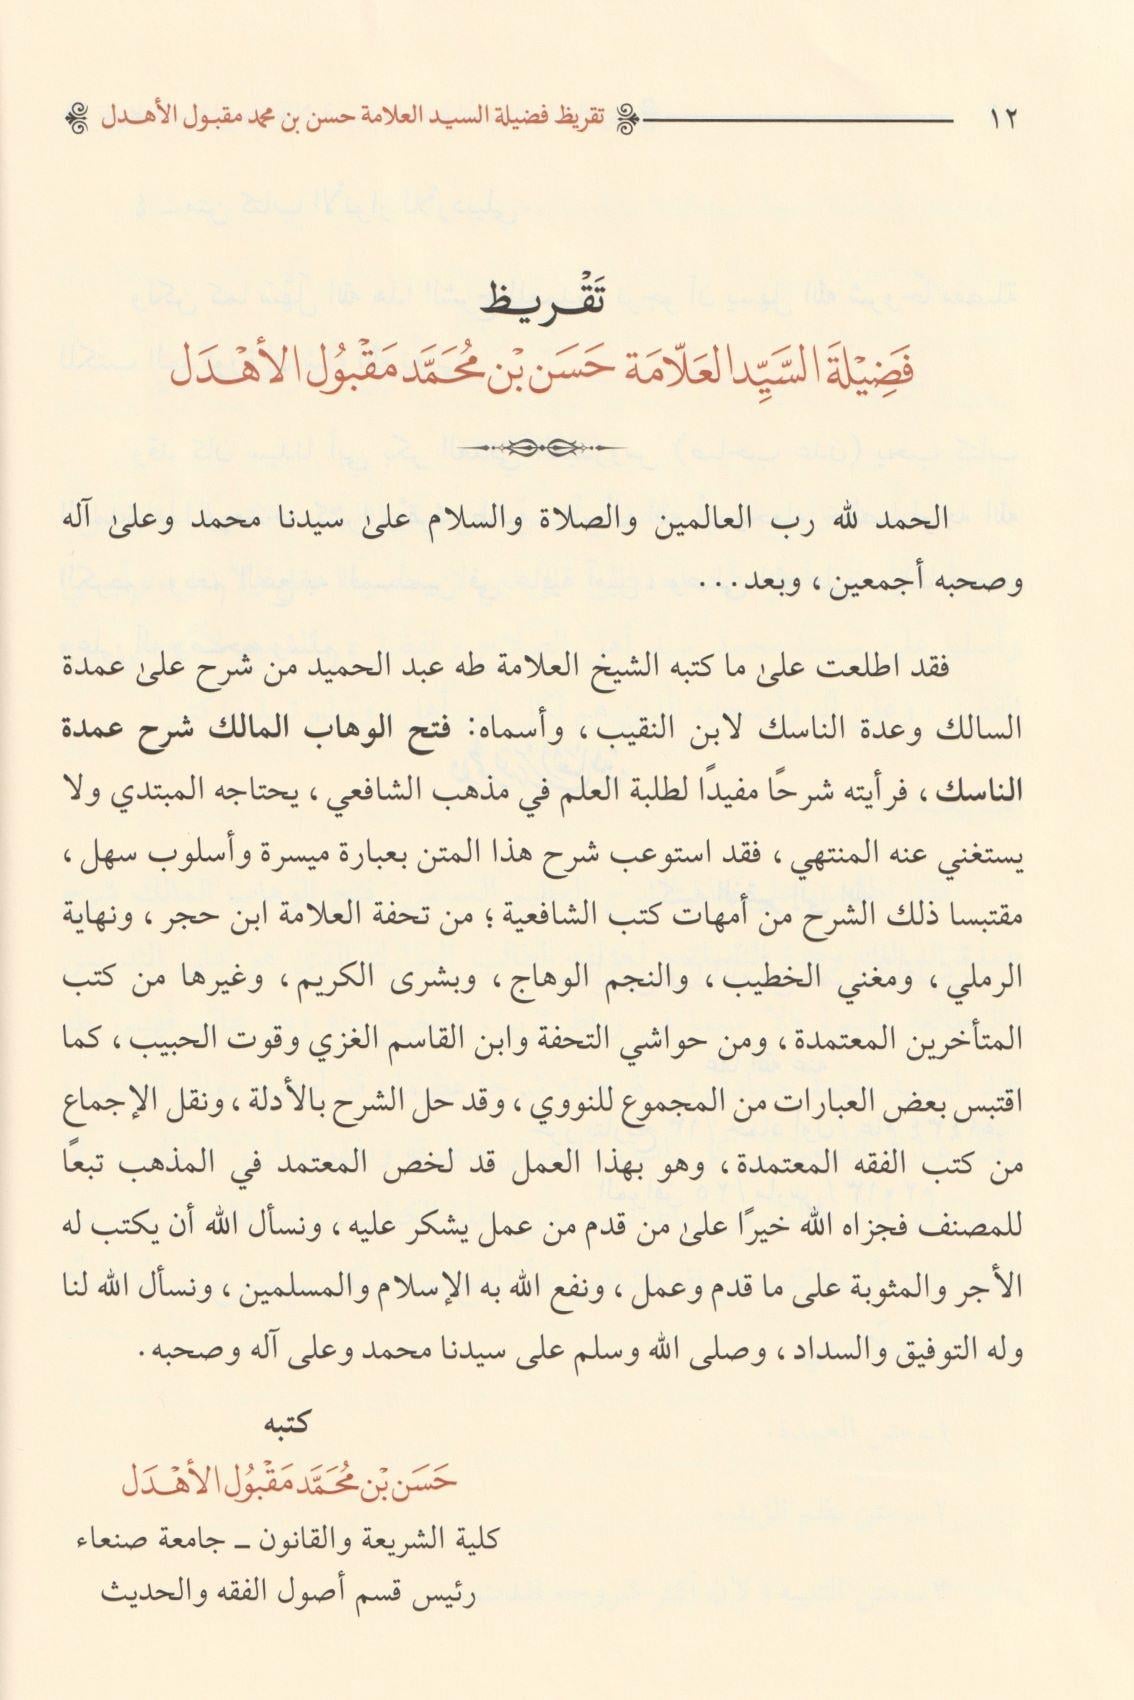 ١٢ تقريظ فضيلة السيد العلامة حسن بن محمد مقبول الأهدل
تَقْريظ
فَضِيْلَةَ السَّيِّد العَلّامَة حَسَن بْن مُحَمَّد مَقْبُول الأهْدَل
الحمد لله رب العالمين والصلاة والسلام علىٰ سيدنا محمد وعلىٰ آله
وصحبه أجمعين، وبعد...
فقد اطلعت علىٰ ما كتبه الشيخ العلامة طه عبد الحميد من شرح علىٰ عمدة
السالك وعدة الناسك لابن النقيب، وأسماه: فتح الوهاب المالك شرح عمدة
الناسك، فرأيته شرحًا مفيدًا لطلبة العلم في مذهب الشافعي، يحتاجه المبتدي ولا
يستغني عنه المنتهي، فقد استوعب شرح هذا المتن بعبارة ميسرة وأسلوب سهل،
مقتبسا ذلك الشرح من أمهات كتب الشافعية؛ من تحفة العلامة ابن حجر، ونهاية
الرملي، ومغني الخطيب، والنجم الوهاج، وبشرى الكريم، وغيرها من كتب
المتأخرين المعتمدة، ومن حواشي التحفة وابن القاسم الغزي وقوت الحبيب، كما
اقتبس بعض العبارات من المجموع للنووي، وقد حل الشرح بالأدلة، ونقل الإجماع
من كتب الفقه المعتمدة، وهو بهذا العمل قد لخص المعتمد في المذهب تبعاً
للمصنف فجزاه الله خيرًا علىٰ من قدم من عمل يشكر عليه، ونسأل الله أن يكتب له
الأجر والمثوبة على ما قدم وعمل، ونفع الله به الإسلام والمسلمين، ونسأل الله لنا
وله التوفيق والسداد، وصلى الله وسلم على سيدنا محمد وعلى آله وصحبه.
كتبه
حَسَن بْن مُحَمَّد مَقْبُول الأهْدَل
كلية الشريعة والقانون ـ جامعة صنعاء
رئيس قسم أصول الفقه والحديث